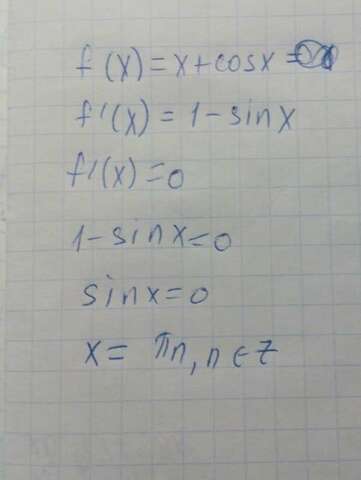 f(x)=x+cosx=
f'(x)=1-sinx
f'(x)=0
1-sinx=0
sinx=0
x= πn, n∈z